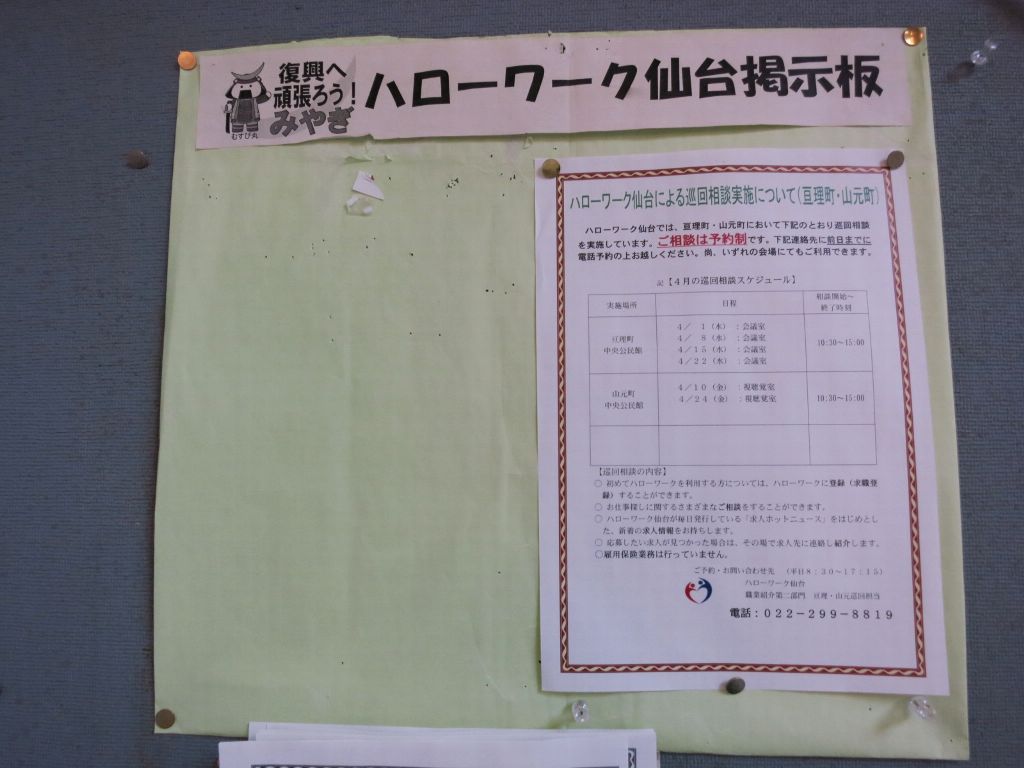 復興へ
頑張ろう!
みやぎ
むすび丸
ハローワーク仙台掲示板
ハローワーク仙台による巡回相談実施について(亘理町・山元町)
ハローワーク仙台では、亘理町・山元町において下記のとおり巡回相談
を実施しています。ご相談は予約制です。下記連絡先に前日までに
電話予約の上お越しください。尚、いずれの会場にてもご利用できます。
記【4月の巡回相談スケジュール】
実施場所 日程 相談開始~
終了時刻
亘理町
中央公民館
4/ 1(水) :会議室
4/ 8(水) :会議室
4/15(水) :会議室
4/22(水) :会議室
10:30~15:00
山元町
中央公民館
4/10(金) :視聴覚室
4/24(金) :視聴覚室
10:30~15:00
【巡回相談の内容】
○ 初めてハローワークを利用する方については、ハローワークに登録(求職登
録)することができます。
○ お仕事探しに関するさまざまなご相談をすることができます。
○ ハローワーク仙台が毎日発行している「求人ホットニュース」をはじめとし
た、新着の求人情報をお持ちします。
○ 応募したい求人が見つかった場合は、その場で求人先に連絡し紹介します。
○雇用保険業務は行っていません。
ご予約・お問い合わせ先 (平日8:30~17:15)
ハローワーク仙台
職業紹介第二部門 亘理・山元巡回担当
電話:022-299-8819